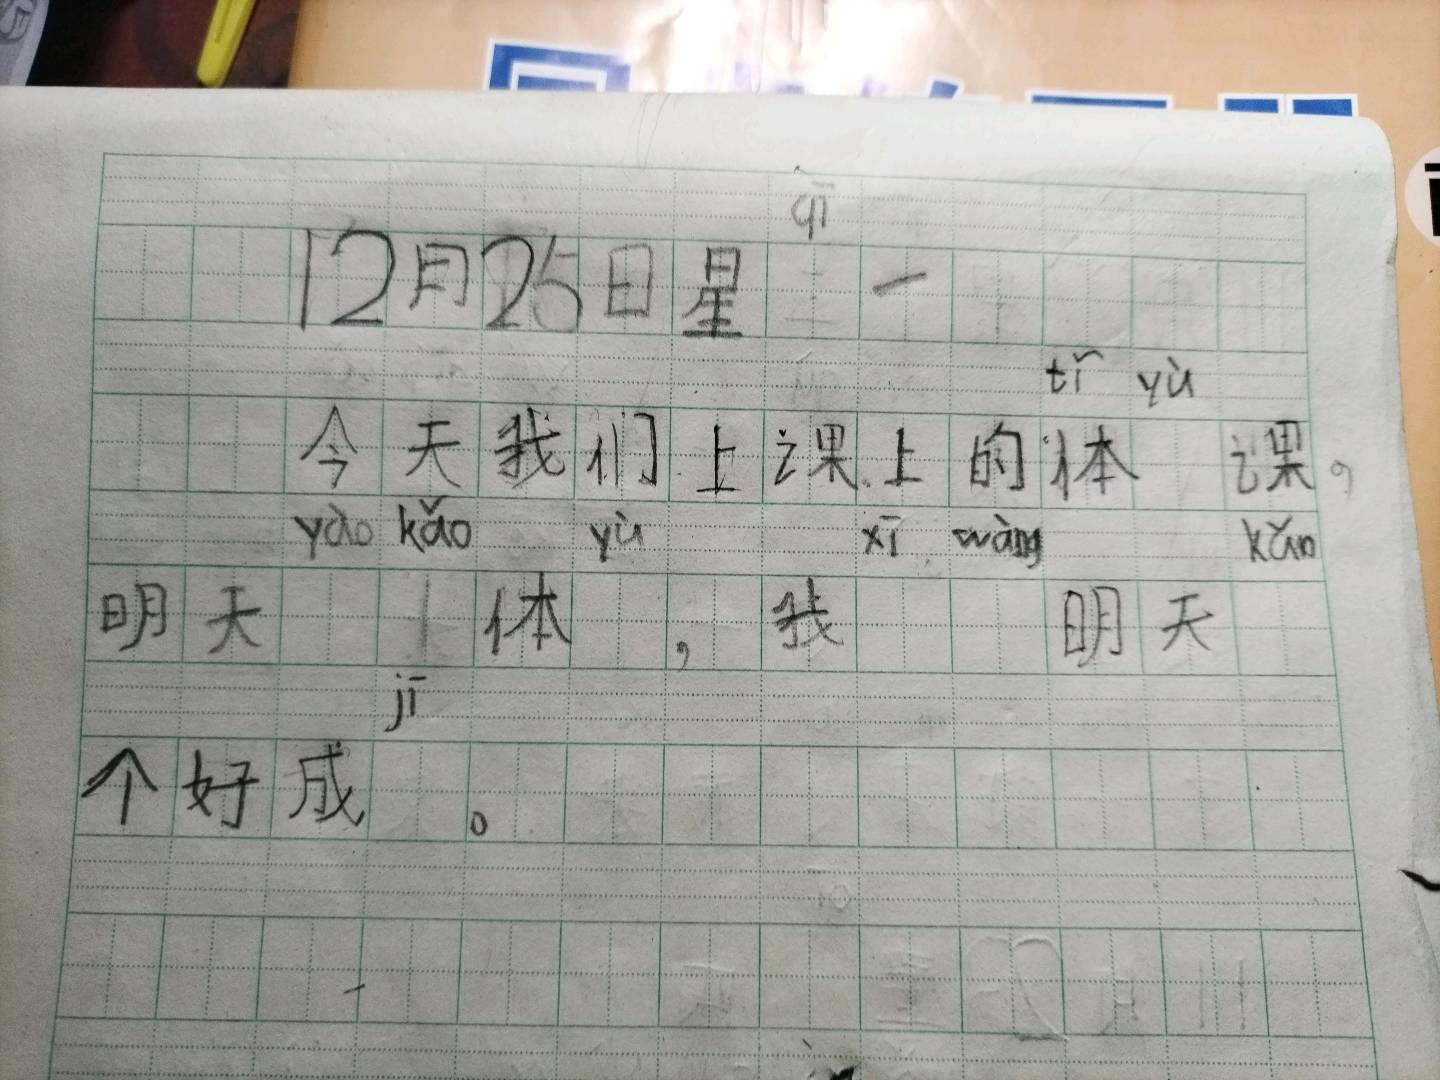 qī
12月25日星 一
tǐ yù
今天我们上课上的体 课，
yào kǎo yù xī wàng kǎo
明天 体 ，我 明天
jī
个好成 。